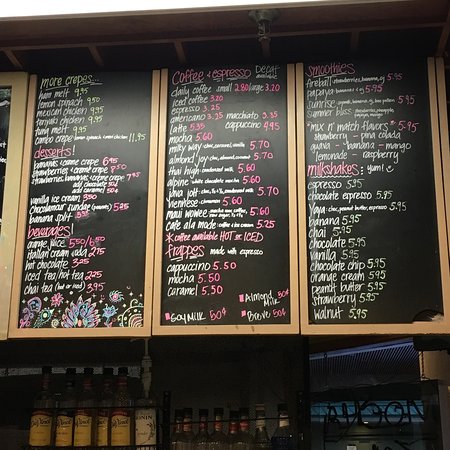 more crepes...
ham melt 9.50
lemon spinach 9.50
mexican chicken 9.50
teriyaki chicken 9.50
tuna melt 9.50
combo crepe 11.95
desserts!
bananas & creme crepe 6.95
strawberries & creme crepe 7.50
strawberries, bananas & creme crepe 7.95
vanilla ice cream 3.50
chocolamour sundae 5.25
banana split
beverages!
orange juice 5.50/6.50
italian cream soda 2.75
hot chocolate 3.25
iced tea/hot tea 2.75
chai tea (hot or iced) 3.95
Coffee & espresso Decaf available
daily coffee small 2.80 large 3.20
iced coffee 3.20
espresso 2.35
americano 3.25 macchiato 3.25
latte 5.35 cappuccino 4.95
mocha 5.60
milky way 5.70
almond joy 5.70
thai high 5.60
alpine white chocolate mocha 5.70
java jolt 5.70
vienthese 5.60
maui wowee 5.60
cafe ala mode 5.60
*coffee available HOT or ICED
frappes made with espresso
cappuccino 5.50
mocha 5.50
caramel 5.50
Soy Milk 50¢
Almond Milk 50¢
Breve 50¢
smoothies
fireball 5.95
papaya 5.95
sunrise 5.95
summer bliss 5.95
"mix n' match flavors" 5.95
strawberry - pina colada
guava - banana - mango
lemonade - raspberry
milkshakes: yum!
espresso 5.95
chocolate espresso 5.95
yaya 5.95
banana 5.95
chai 5.95
chocolate 5.95
vanilla 5.95
chocolate chip 5.95
orange cream 5.95
peanut butter 5.95
strawberry 5.95
walnut 5.95